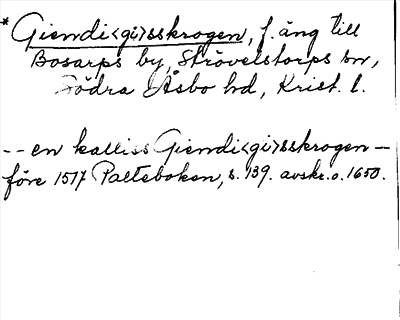 *Giendi<gi>sskrogen, f. äng till
Bosarps by, Strövelstorps sn,
Södra Åsbo hd, Krist. l.
-- en kalliss Giendi<gi>sskrogen --
före 1517 Palteboken, s. 139. avskr. o. 1650.